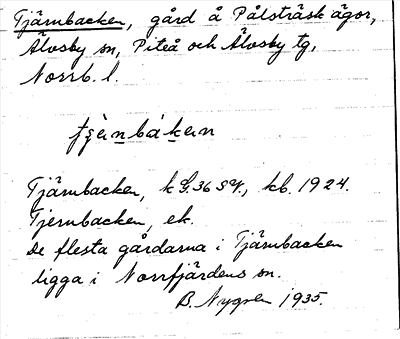 Tjärnbacken, gård å Pålsträsk ägor,
Älvsby sn, Piteå och Älvsby tg,
Norrb. l.
Tjärnbacken, kb. 1924.
Tjernbacken, ek.
De flesta gårdarna i Tjärnbacken
ligga i Norrfjärdens sn.
B. Nygren 1935.